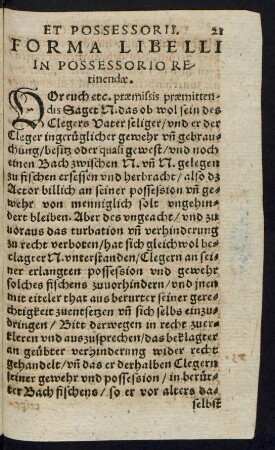 ET POSSESSORII. 21
FORMA LIBELLI
IN POSSESSORIO RE-
tinendæ.
VOr euch etc. præmissis præmitten-
dis Saget N. das ob wol sein des
Clegers Vater seliger / vnd er der
Cleger in gerüglicher gewehr vñ gebrau-
chung / besitz oder quasi gewest / vnd noch
einen Bach zwischen N. vñ N. gelegen
zu fischen ersessen vnd herbracht / also dz
Actor billich an seiner possession vñ ge-
wehr von menniglich solt vngehin-
dert bleiben. Aber des vngeacht / vnd zu
uoraus das turbation vñ verhinderung
zu recht verboten / hat sich gleichwol be-
lagter N. vnterstanden / Clegern an sei-
ner erlangten possession vnd gewehr
solches fischens zuuorhindern / vnd jnen
mit eiteler that aus berurter seiner gere-
chtigkeit zuentsetzen vñ sich selbs einzu-
dringen / Bitt derwegen in recht zuer-
kleren vnd auszusprechen / das beklagter
an geübter verhinderung wider recht
gehandelt / vñ das er derhalben Clegern
seiner gewehr vnd possession / in berür-
ter Bach fischens / so er vor alters da-
selbst